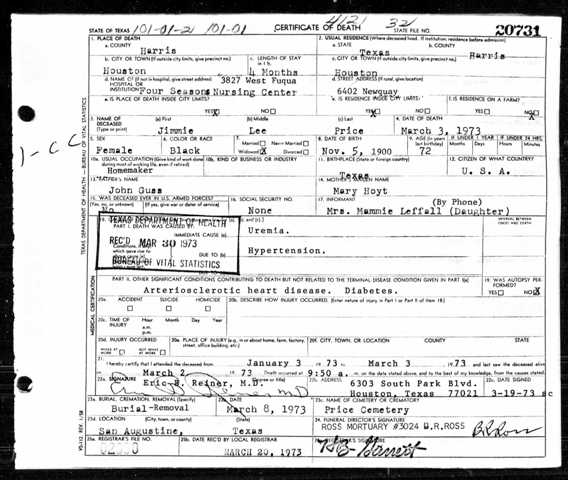 101-01-2 101-01 4121 32
STATE OF TEXAS CERTIFICATE OF DEATH STATE FILE NO. 20731
1. PLACE OF DEATH 2. USUAL RESIDENCE (Where deceased lived. If institution: residence before admission)
a. COUNTY Harris a. STATE Texas b. COUNTY Harris
b. CITY OR TOWN (If outside city limits, give precinct no.) c. LENGTH OF STAY c. CITY OR TOWN (If outside city limits, give precinct no.)
Houston 4 Months Houston
d. NAME OF (If not in hospital, give street address) 3827 West Fuqua d. STREET ADDRESS
HOSPITAL OR INSTITUTION Four Seasons Nursing Center 6402 Newquay
e. IS PLACE OF DEATH INSIDE CITY LIMITS? YES NO e. IS RESIDENCE INSIDE CITY LIMITS? YES NO f. IS RESIDENCE ON A FARM? YES NO X
3. NAME OF DECEASED (Type or print) (a) First (b) Middle (c) Last 4. DATE OF DEATH
Jimmie Lee Price March 3, 1973
5. SEX 6. COLOR OR RACE 7. Married Never Married 8. DATE OF BIRTH 9. AGE (In years last birthday) IF UNDER 1 YEAR IF UNDER 24 HRS.
Female Black Widowed X Divorced Nov. 5, 1900 72 Months Days Hours Minutes
10a. USUAL OCCUPATION (Give kind of work done during most of working life, even if retired) 10b. KIND OF BUSINESS OR INDUSTRY 11. BIRTHPLACE (State or foreign country) 12. CITIZEN OF WHAT COUNTRY
Homemaker Texas U. S. A.
13. FATHER'S NAME 14. MOTHER'S MAIDEN NAME
John Guss Mary Hoyt
15. WAS DECEASED EVER IN U.S. ARMED FORCES? 16. SOCIAL SECURITY NO. 17. INFORMANT (By Phone)
(Yes, no, or unknown) (If yes, give war or dates of service)
No None Mrs. Mammie Leffall (Daughter)
TEXAS DEPARTMENT OF HEALTH
PART I. DEATH WAS CAUSED BY:
IMMEDIATE CAUSE (a) Uremia.
REC'D MAR 30 1973
DUE TO (b) Hypertension.
BUREAU OF VITAL STATISTICS
DUE TO (c)
PART II. OTHER SIGNIFICANT CONDITIONS CONTRIBUTING TO DEATH BUT NOT RELATED TO THE TERMINAL DISEASE CONDITION GIVEN IN PART I(a) 19. WAS AUTOPSY PERFORMED?
Arteriosclerotic heart disease. Diabetes. YES NO X
20a. ACCIDENT SUICIDE HOMICIDE 20b. DESCRIBE HOW INJURY OCCURRED. (Enter nature of injury in Part I or Part II of item 18)
20c. TIME OF INJURY Hour Month Day Year
a.m.
p.m.
20d. INJURY OCCURRED 20e. PLACE OF INJURY (e.g., in or about home, farm, factory, street, office building, etc.) 20f. CITY, TOWN, OR LOCATION COUNTY STATE
WHILE AT WORK NOT WHILE AT WORK
21. I hereby certify that I attended the deceased from January 3 1973 to March 3 1973 and last saw the deceased alive
March 2, 1973 Death occurred at 9:50 a. m. on the date stated above, and to the best of my knowledge, from the causes stated.
22a. SIGNATURE Eric B. Reiner, M.D. 22b. ADDRESS 6303 South Park Blvd. 22c. DATE SIGNED
Houston, Texas 77021 3-19-73 sc
23a. BURIAL, CREMATION, REMOVAL (Specify) 23b. DATE 23c. NAME OF CEMETERY OR CREMATORY
Burial-Removal March 8, 1973 Price Cemetery
23d. LOCATION (City, town, or county) (State) 24. FUNERAL DIRECTOR'S SIGNATURE
San Augustine, Texas ROSS MORTUARY #3024 B.R.ROSS B.R.Ross
25a. REGISTRAR'S FILE NO. 25b. DATE REC'D BY LOCAL REGISTRAR 25c. REGISTRAR'S SIGNATURE
MARCH 20, 1973
1-CC
TEXAS DEPARTMENT OF HEALTH — BUREAU OF VITAL STATISTICS
MEDICAL CERTIFICATION